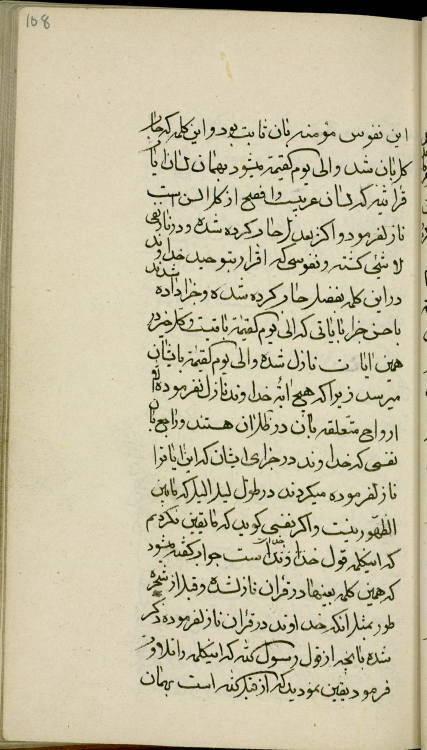 108
این نفوس مؤمنه بآن ثابت بود و این کلمه که جار
کل بآن شد والی یوم القیمة میشود بهمان لسان آیات
قرآنیه که لسان عربیت وافصح از کل السن است
نازل فرمود واکر بعدل جاری کرده شده و در نار نفی
لا شیئی کشته و نفوسی که اقرار بتوحید خداوند
در این کلمه بفضل جاری کرده شده و جزا داده شدند
باحسن جزا بآیاتی که الی یوم القیمة باقیست و کل جزا در
همین آیات نازل شده والی یوم القیمة بایشان
میرسد زیرا که هیچ آیه خداوند نازل نفرموده الا
ارواح متعلقه بآن در ظل آن هستند و راجع بآن
نفسی که خداوند در جزای ایشان که این آیات را
نازل فرموده میکردند در طول لیل الیل که مابین
الظهورین است واکر نفسی کوید که ما یقین نکردیم
که این کلمه قول خداوند است جواب کفته میشود
که همین کلمه بعینها در قرآن نازل شده و قبل از شجره
طور بمثل آنکه خداوند در قرآن نازل فرموده ذکر
شده بآنچه از قول رسول الله که این کلمه را تلاوت
فرمود یقین نمودید که از قبل الله است بهمان